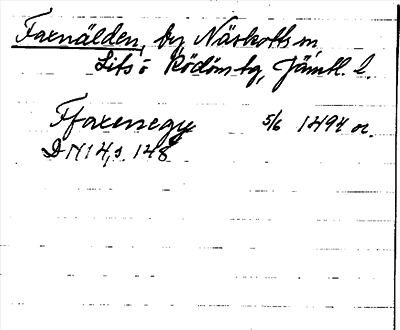 Faxnälden, by, Näskotts sn,
Lits o Rödöns tg, Jämtl. l.
Ffaxenegy 5/6 1494 or.
DN 14, s. 148